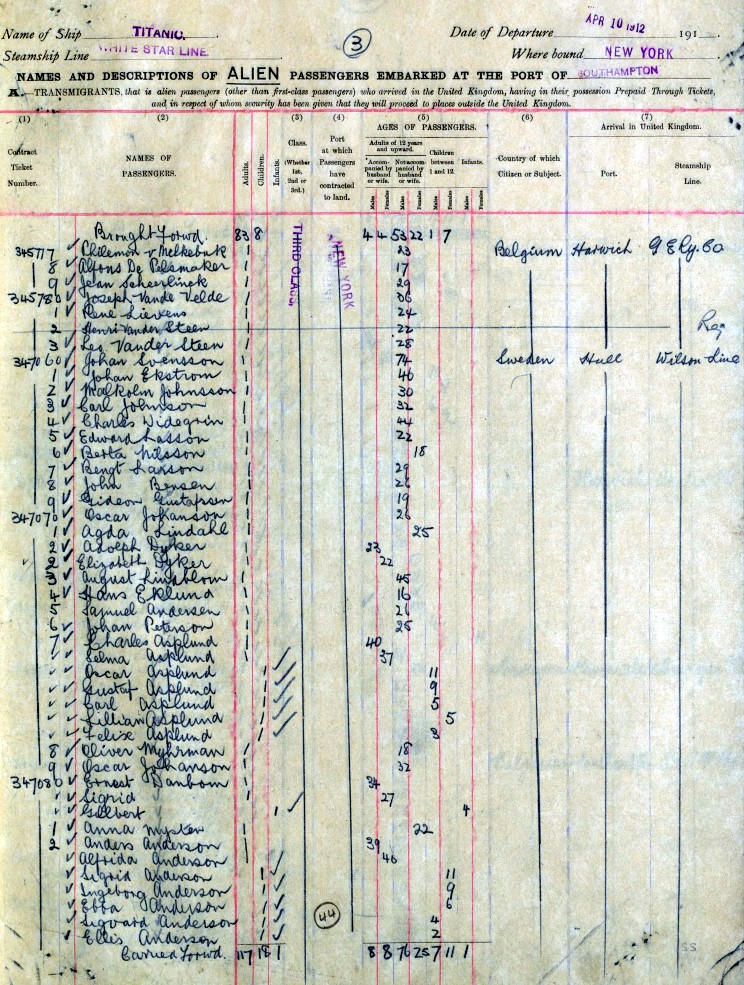 Name of Ship TITANIC. Date of Departure APR 10 1912 191
Steamship Line WHITE STAR LINE. 3 Where bound NEW YORK
NAMES AND DESCRIPTIONS OF ALIEN PASSENGERS EMBARKED AT THE PORT OF SOUTHAMPTON
A.—TRANSMIGRANTS, that is alien passengers (other than first-class passengers) who arrived in the United Kingdom, having in their possession Prepaid Through Tickets,
and in respect of whom security has been given that they will proceed to places outside the United Kingdom.
(1) (2) (3) (4) (5) (6) (7)
Contract Ticket Number. NAMES OF PASSENGERS. Adults. Children. Infants. Class. (Whether 1st, 2nd or 3rd.) Port at which Passengers have contracted to land. AGES OF PASSENGERS. Adults of 12 years and upward. Accompanied by husband or wife. Not accompanied by husband or wife. Children between 1 and 12. Infants. Males Females Males Females Males Females Males Females Country of which Citizen or Subject. Arrival in United Kingdom. Port. Steamship Line.
THIRD CLASS. NEW YORK
Brought Forwd. 83 8 4 4 53 22 1 7
345777 Philemon v Melkebuk 1 23 Belgium Harwich G E Ry. Co
8 Alfons De Pelsmaker 1 17
9 Jean Scheerlinck 1 29
345780 Joseph Vande Velde 1 36
1 Rene Lievens 1 24
2 Henri Vander Steen 22
3 Leo Vander Steen 1 28
347060 Johan Svensson 1 74 Sweden Hull Wilson Line
1 Johan Ekstrom 1 46
2 Malkolm Johnsson 1 30
3 Carl Johnson 1 32
4 Charles Widegrin 1 44
5 Edward Lasson 1 22
6 Berta Nilsson 1 18
7 Bengt Larson 1 29
8 John Bensen 1 26
9 Gideon Gustafsen 1 19
347070 Oscar Johanson 1 26
1 Agda Lindahl 1 25
2 Adolph Dyker 1 23
2 Elizabeth Dyker 1 22
3 August Lindblom 1 45
4 Hans Eklund 1 16
5 Samuel Andersen 1 21
6 Johan Peterson 1 25
7 Charles Asplund 1 40
Selma Asplund 1 37
Oscar Asplund 1 11
Gustaf Asplund 1 9
Carl Asplund 1 5
Lillian Asplund 1 5
Felix Asplund 1 3
8 Oliver Myhrman 1 18
9 Oscar Johanson 1 32
347080 Ernest Danbom 1 34
Sigrid 1 27
Gilbert 1 4
1 Anna 1 22
2 Anders Anderson 1 39
Alfrida Anderson 1 46
Sigrid Anderson 1 11
Ingeborg Anderson 1 9
Ebba Anderson 1 6
Sigvard Anderson 1 4
Ellis Anderson 1 2
44
Carried Forwd. 117 18 1 8 8 76 25 7 11 1